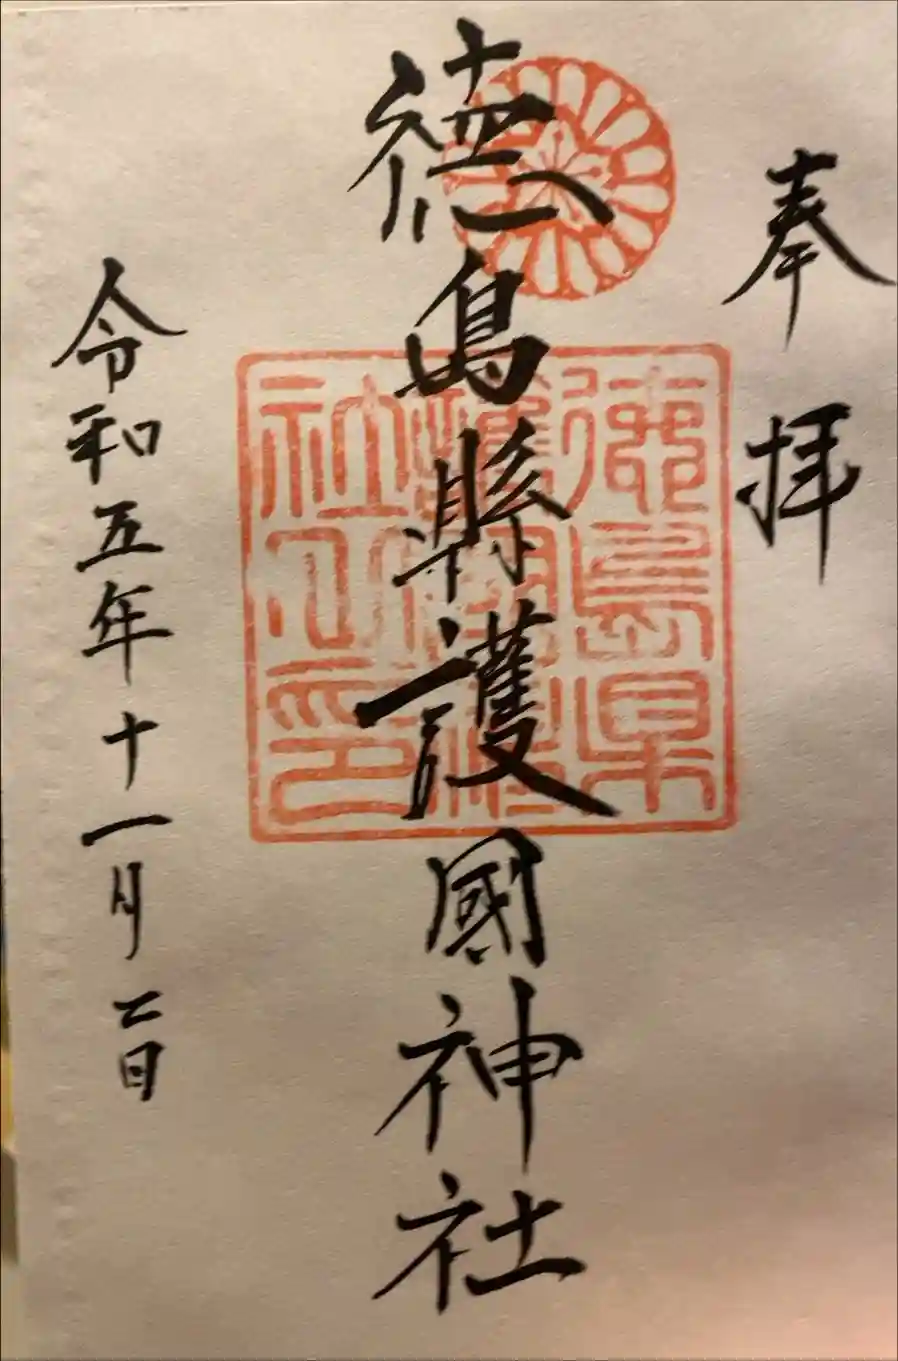 奉拝
徳島縣護國神社
徳島県
護國神
社之印
令和五年十一月二日